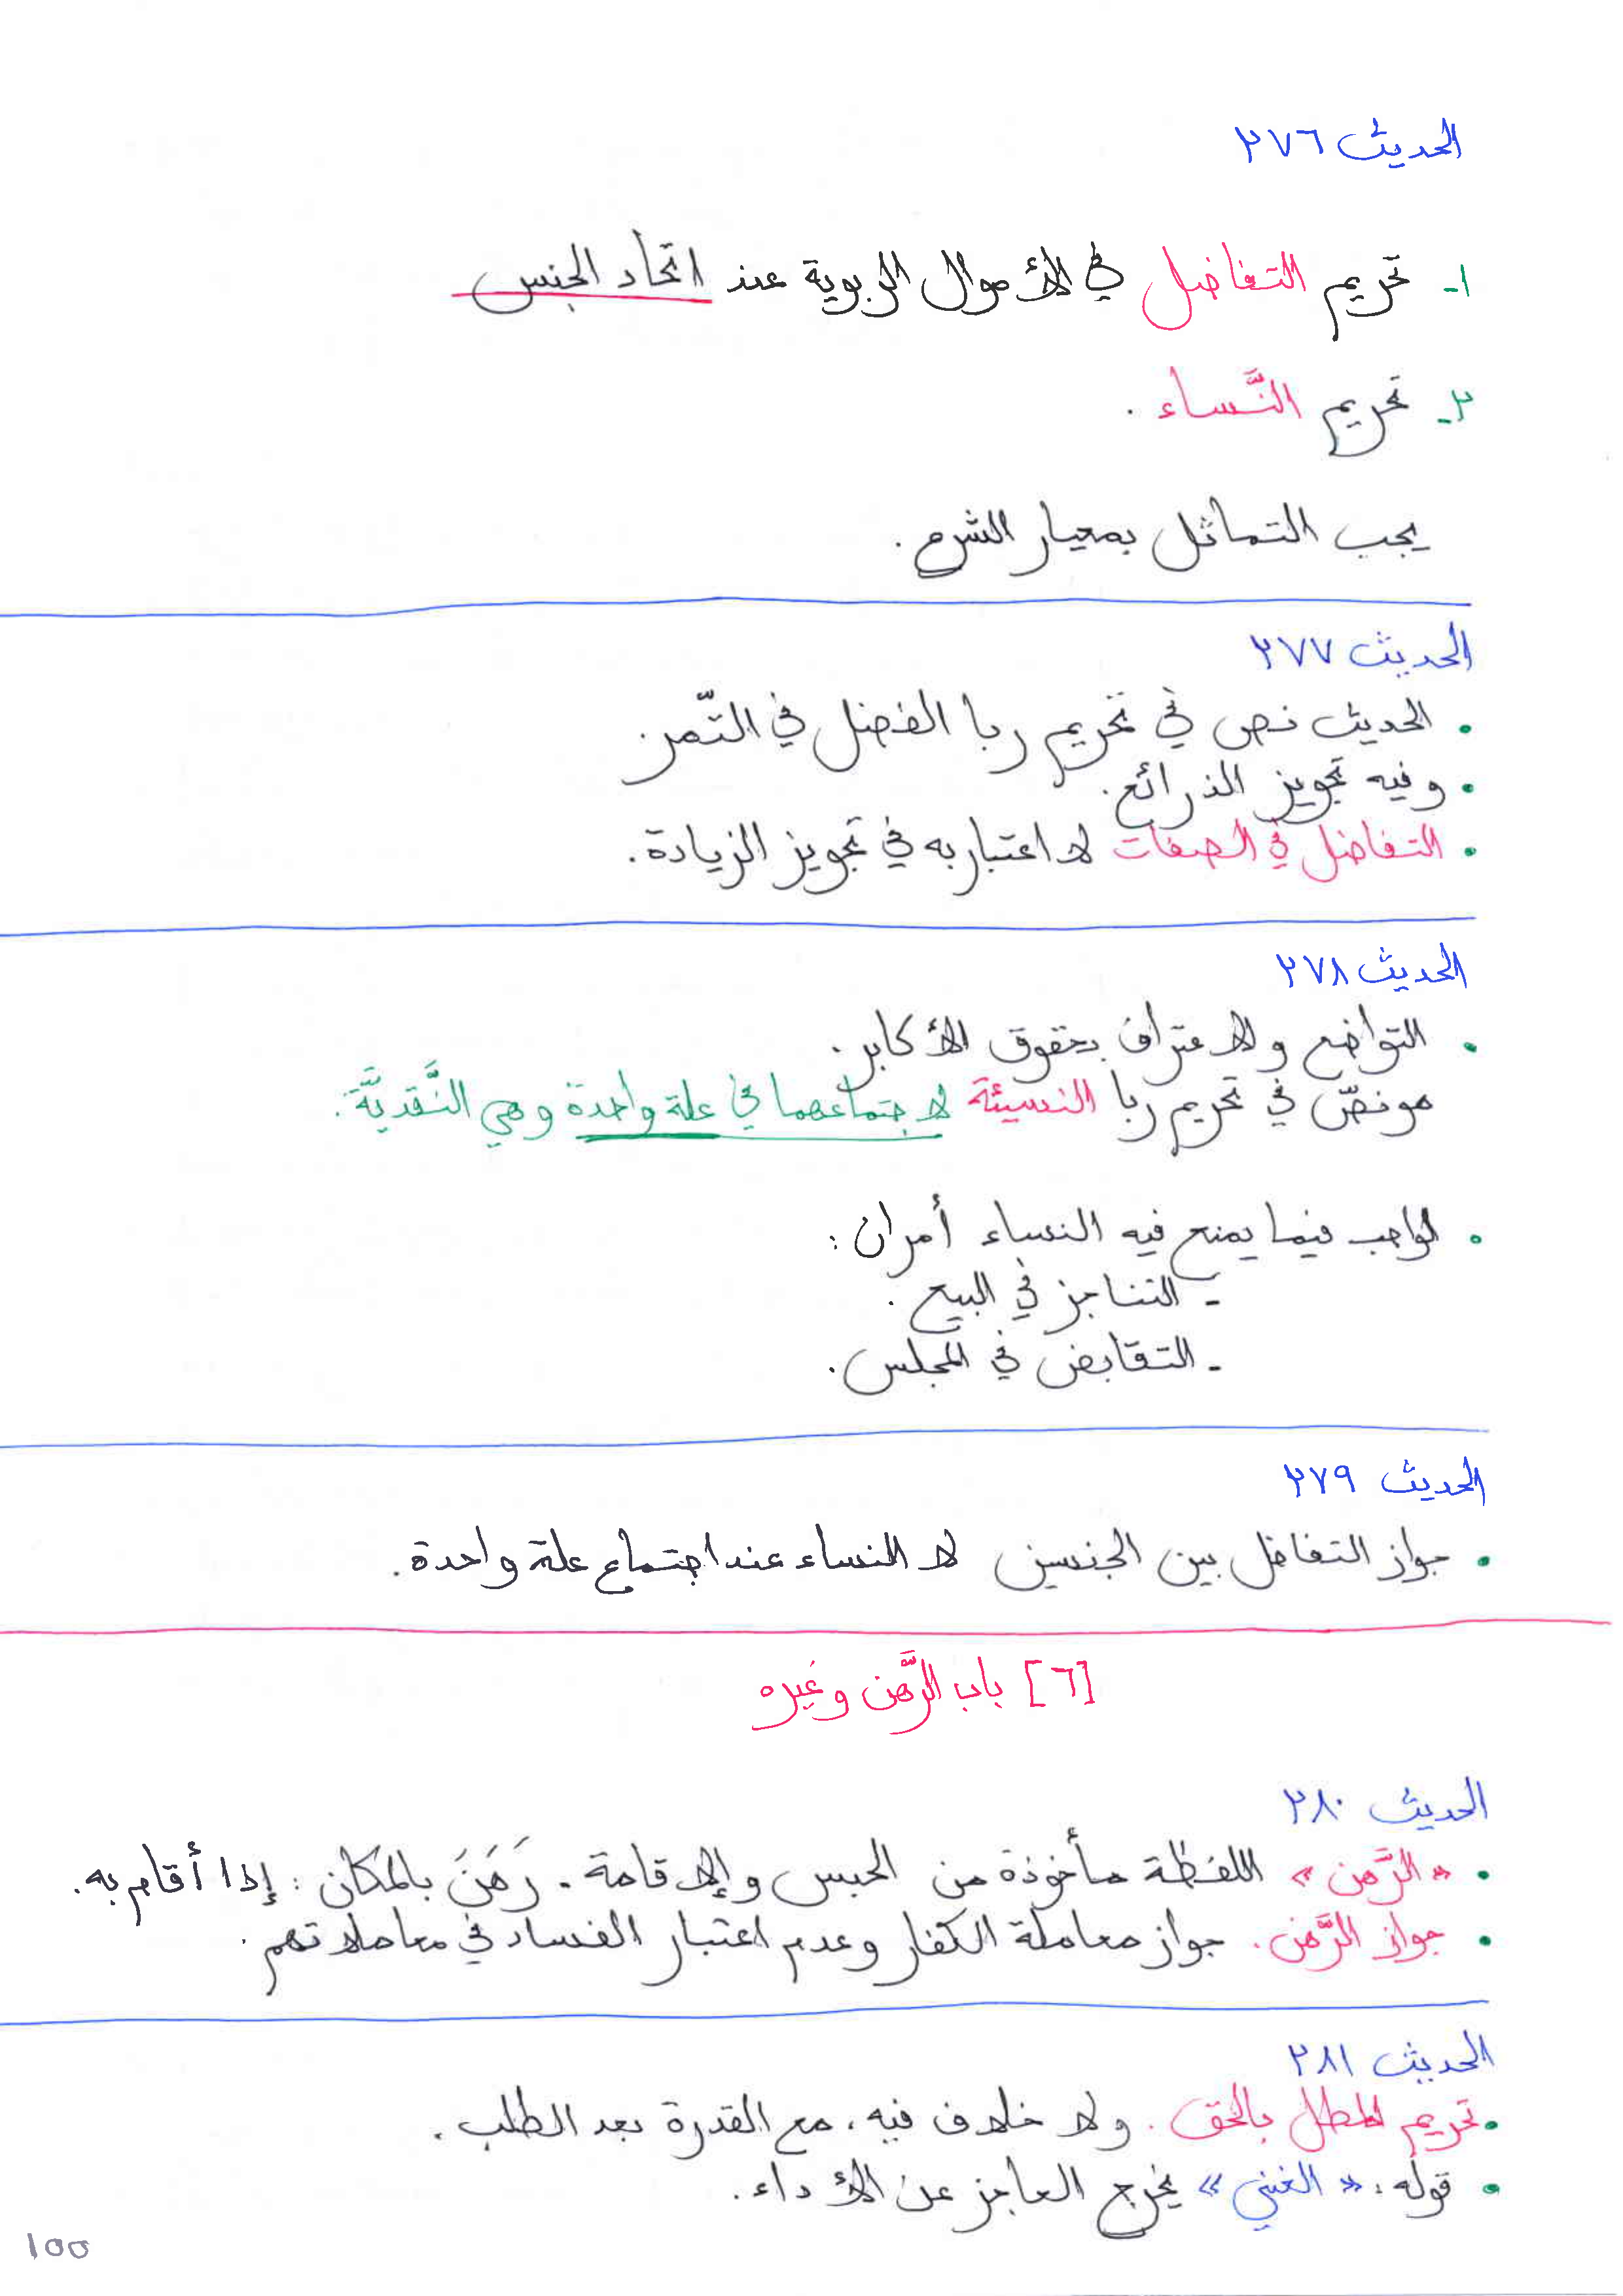 الحديث ٢٧٦
١- تحريم التفاضل في الأموال الربوية عند اتحاد الجنس
٢- تحريم النَّساء .
يجب التماثل بمعيار الشرع .
الحديث ٢٧٧
• الحديث نص في تحريم ربا الفضل في التّمر .
• وفيه تجويز الذرائع .
• التفاضل في الصفات لا اعتبار به في تجويز الزيادة .
الحديث ٢٧٨
• التواضع والاعتراف بحقوق الأكابر .
هو نصّ في تحريم ربا النسيئة لاجتماعهما في علة واحدة وهي النَّقديَّة .
• الواجب فيما يمنع فيه النساء أمران :
- التناجز في البيع .
- التقابض في المجلس .
الحديث ٢٧٩
• جواز التفاضل بين الجنسين لا النساء عند اجتماع علة واحدة .
[٦] باب الرَّهن وغيره
الحديث ٢٨٠
• « الرَّهن » اللفظة مأخوذة من الحبس والإقامة . رَهَنَ بالمكان : إذا أقام به .
• جواز الرَّهن . جواز معاملة الكفار وعدم اعتبار الفساد في معاملاتهم .
الحديث ٢٨١
• تحريم المطل بالحق . ولا خلاف فيه ، مع القدرة بعد الطلب .
• قوله : « الغني » يخرج العاجز عن الأداء .
١٥٥